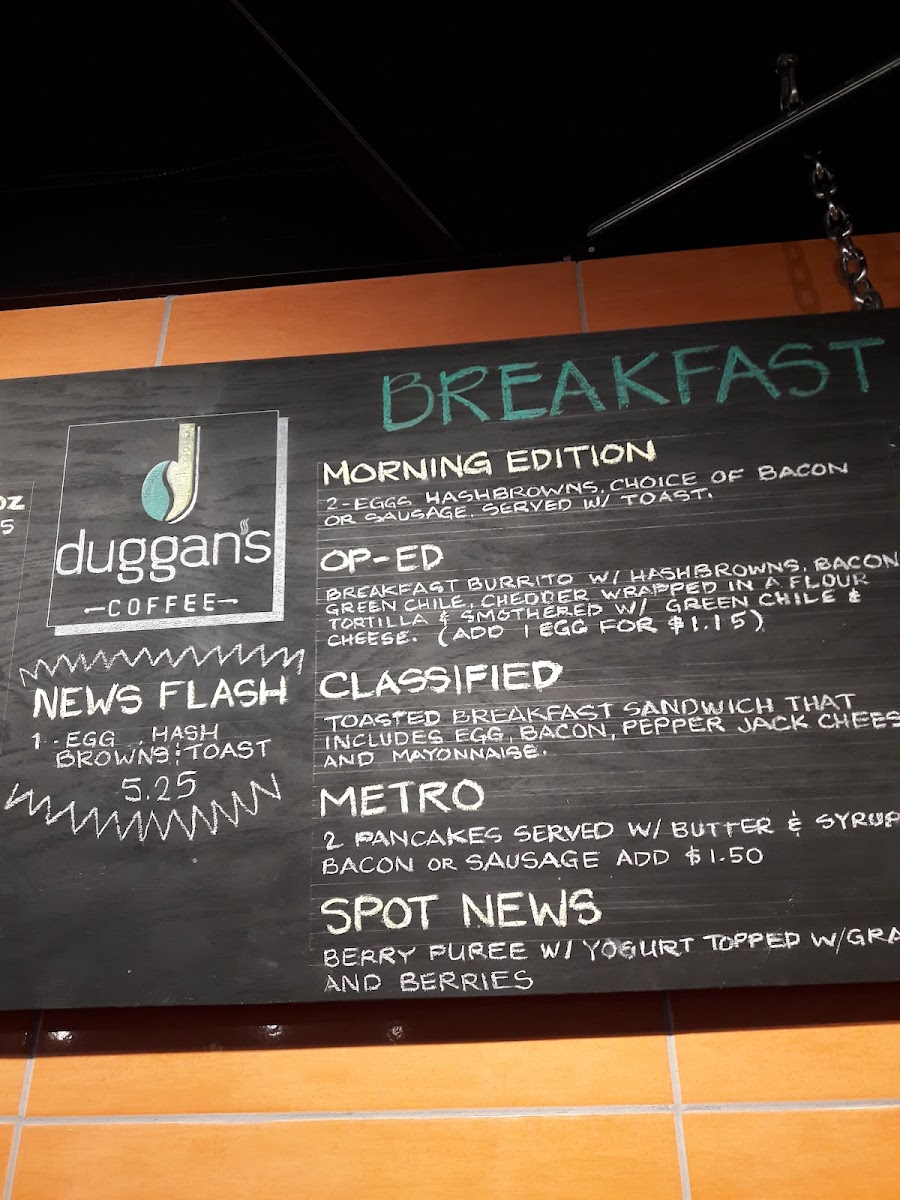 OZ
5
duggan's
COFFEE
NEWS FLASH
1 - EGG HASH
BROWNS & TOAST
5.25
BREAKFAST
MORNING EDITION
2-EGGS HASHBROWNS, CHOICE OF BACON
OR SAUSAGE. SERVED W/ TOAST.
OP-ED
BREAKFAST BURRITO W/ HASHBROWNS, BACON
GREEN CHILE, CHEDDER WRAPPED IN A FLOUR
TORTILLA & SMOTHERED W/ GREEN CHILE &
CHEESE. (ADD 1 EGG FOR $1.15)
CLASSIFIED
TOASTED BREAKFAST SANDWICH THAT
INCLUDES EGG, BACON, PEPPER JACK CHEES
AND MAYONNAISE.
METRO
2 PANCAKES SERVED W/ BUTTER & SYRUP
BACON OR SAUSAGE ADD $1.50
SPOT NEWS
BERRY PUREE W/ YOGURT TOPPED W/GRA
AND BERRIES